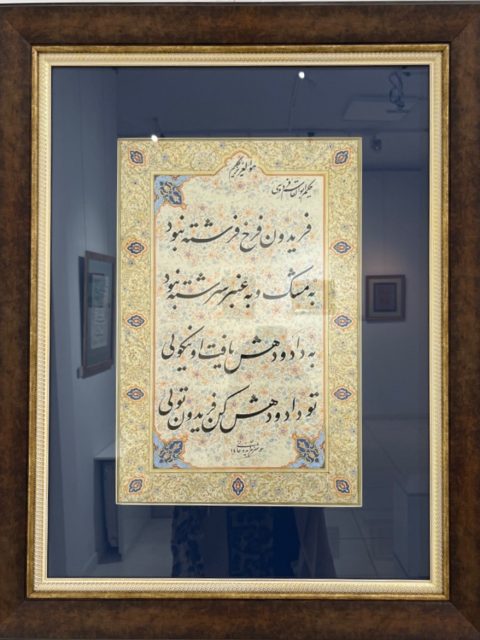 هو العزیز
حکیم ابوالقاسم فردوسی
فریدون فرخ فرشته نبود
به مشک و به عنبر سرشته نبود
به داد و دهش یافت او نیکوئی
تو داد و دهش کن فریدون توئی